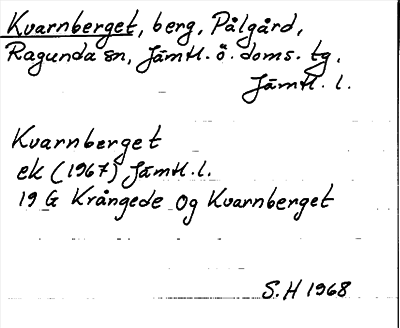 Kvarnberget, berg, Pålgård,
Ragunda sn, Jämtl. ö. doms. tg.
Jämtl. l.
Kvarnberget
ek (1967) Jämtl. l.
19 G Krångede og Kvarnberget
S.H 1968